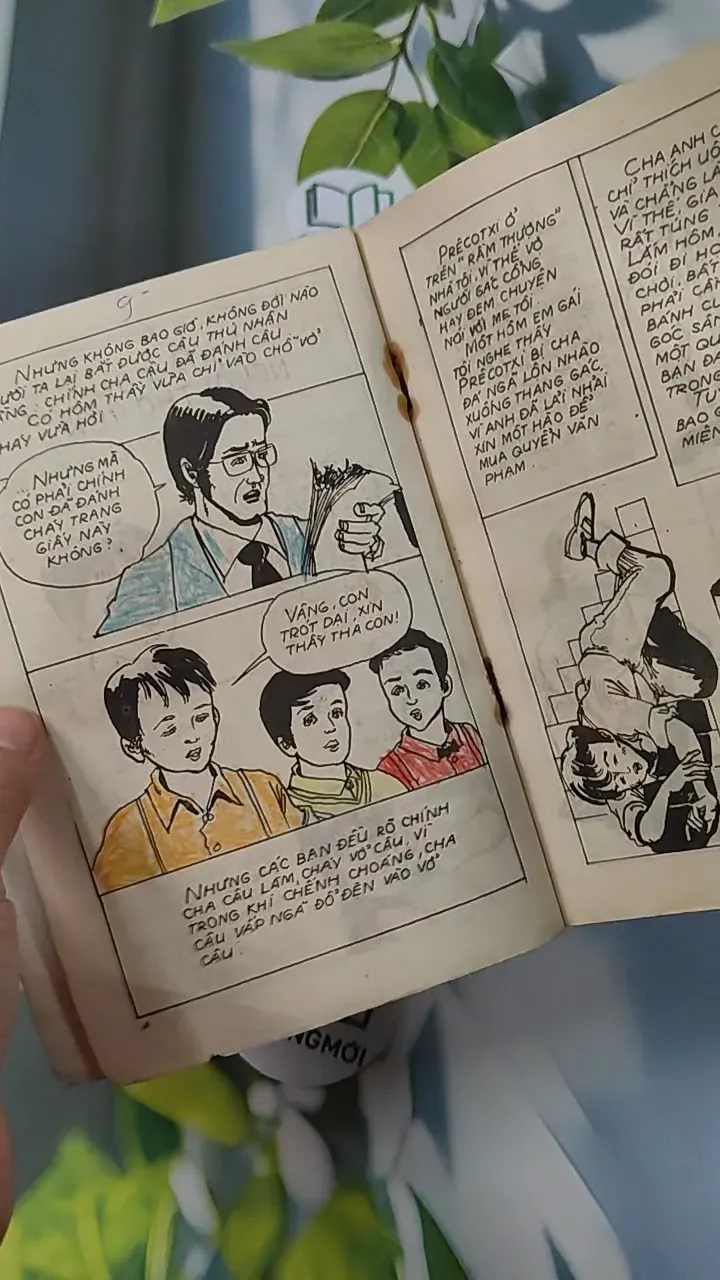 9-
NHƯNG KHÔNG BAO GIỜ, KHÔNG ĐỜI NÀO
ƯỜI TA LẠI BẮT ĐƯỢC CẬU THÚ NHẬN
CHÍNH CHA CẬU ĐÃ ĐÁNH CẬU.
CÓ HÔM THẦY VỪA CHỈ VÀO CHỖ VỞ
HÁY VỪA HỎI
NHƯNG MÀ
CÓ PHẢI CHÍNH
CON ĐÃ ĐÁNH
CHÁY TRANG
GIẤY NÀY
KHÔNG?
VÂNG, CON
TRÓT DẠI, XIN
THẦY THA CON!
NHƯNG CÁC BẠN ĐỀU RÕ CHÍNH
CHA CẬU LÀM CHÁY VỞ CẬU, VÌ
TRONG KHI CHẾNH CHOÁNG, CHA
CẬU VẤP NGÃ ĐỔ ĐÈN VÀO VỞ
CẬU.
PRÊCOTXI Ở
TRÊN "RẦM THƯỢNG"
NHÀ TÔI, VÌ THẾ VỢ
NGƯỜI GÁC CỔNG
HAY ĐEM CHUYỆN
NÓI VỚI MẸ TÔI.
MỘT HÔM EM GÁI
TÔI NGHE THẤY
PRÊCOTXI BỊ CHA
ĐÁ NGÃ LỘN NHÀO
XUỐNG THANG GÁC,
VÌ ANH ĐÃ LẢI NHẢI
XIN MỘT HÀO ĐỂ
MUA QUYỂN VĂN
PHẠM.
CHA ANH
CHỈ THÍCH UỐ
VÀ CHẲNG LÀ
VÌ THẾ, GIA
RẤT TÚNG
LẮM HÔM
ĐÓI ĐI HỌ
CHƠI, BẮT
PHẢI CẮN
BÁNH CỦ
GÓC SÂN
MỘT QU
BẠN ĐÃ
TRONG
TU
BAO
MIỆN
NGMỚI